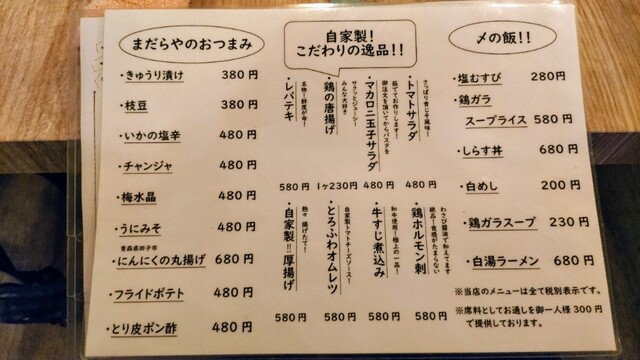 まだらやのおつまみ
・きゅうり漬け 380円
・枝豆 380円
・いかの塩辛 480円
・チャンジャ 480円
・梅水晶 480円
・うにみそ 480円
青森県田子市
・にんにくの丸揚げ 680円
・フライドポテト 480円
・とり皮ポン酢 480円
自家製!
こだわりの逸品!!
さっぱり青じそ風味!
・トマトサラダ
480円
茹でてお作りします!
御注文を頂いてからパスタを
・マカロニ玉子サラダ
480円
サクッとジューシー
みんな大好き
・鶏の唐揚げ
1ヶ230円
名物!鮮度が命!
・レバテキ
580円
わさび醤油で和えてます
絶品!食感がたまらない
・鶏ホルモン刺
580円
和牛使用!極上の一品!
・牛すじ煮込み
580円
自家製トマトチーズソース!
・とろふわオムレツ
580円
熱々 揚げたて!
・自家製!!厚揚げ
580円
〆の飯!!
・塩むすび 280円
・鶏ガラ
スープライス 580円
・しらす丼 680円
・白めし 200円
・鶏ガラスープ 230円
・白湯ラーメン 680円
※当店のメニューは全て税別表示です。
※席料としてお通しを御一人様300円
で提供しております。